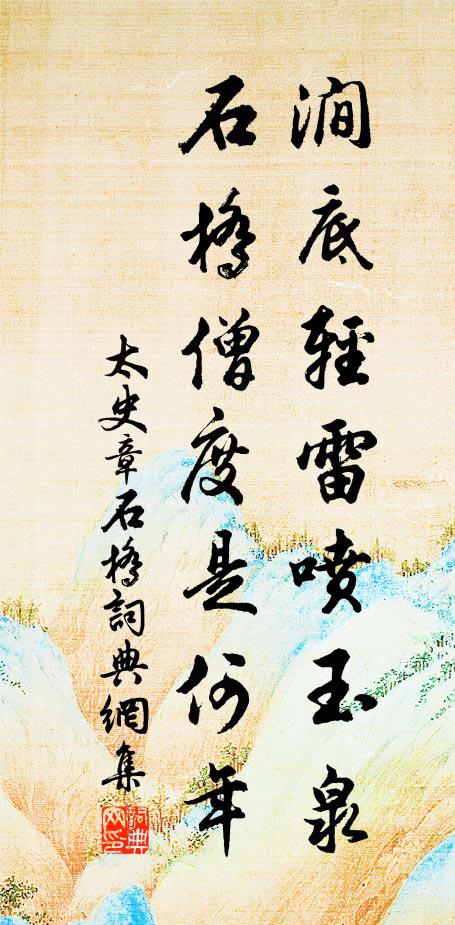 澗底輕雷噴玉泉
石橋僧度是何年
太史章石橋詞典網集